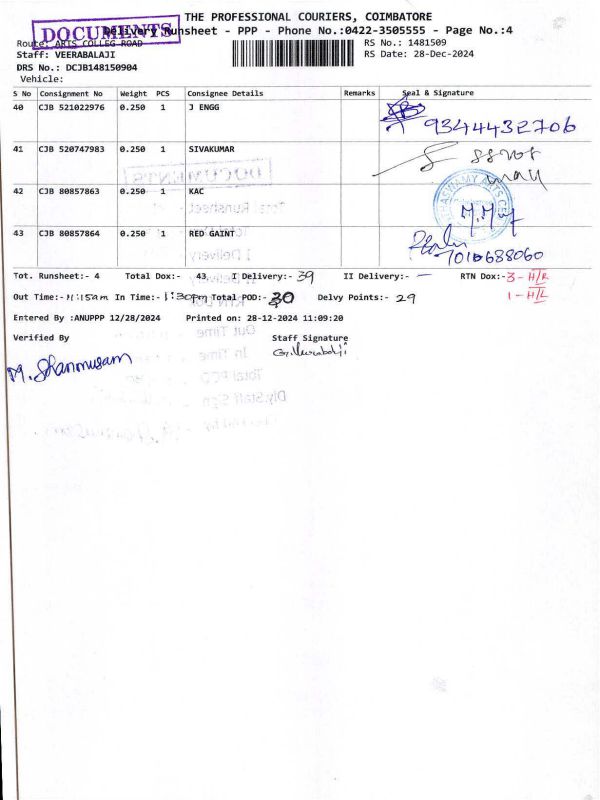 THE PROFESSIONAL COURIERS, COIMBATORE
DOCUMENTS
Delivery Runsheet - PPP - Phone No.:0422-3505555 - Page No.:4
Route: ARTS COLLEG ROAD
RS No.: 1481509
Staff: VEERABALAJI
RS Date: 28-Dec-2024
DRS No.: DCJB148150904
Vehicle:
S No Consignment No Weight PCS Consignee Details Remarks Seal & Signature
40 CJB 521022976 0.250 1 J ENGG
9344432706
41 CJB 520747983 0.250 1 SIVAKUMAR
42 CJB 80857863 0.250 1 KAC
43 CJB 80857864 0.250 1 RED GAINT
7010688060
Tot. Runsheet:- 4 Total Dox:- 43, I Delivery:- 39 II Delivery:- — RTN Dox:- 3 - H/R
1 - H/L
Out Time:- 11:15am In Time:- 1:30pm Total POD:- 30 Delvy Points:- 29
Entered By :ANUPPP 12/28/2024 Printed on: 28-12-2024 11:09:20
Verified By Staff Signature
M. Shanmugam